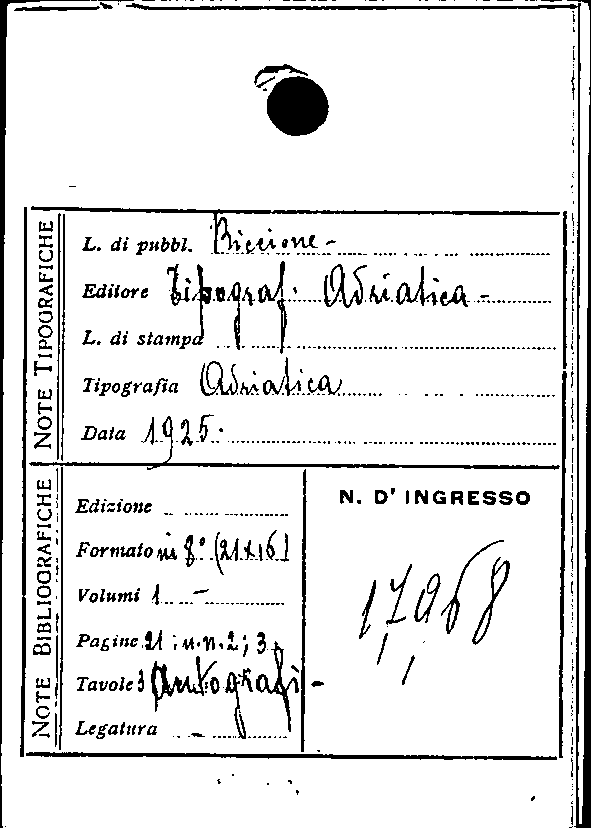 NOTE TIPOGRAFICHE
L. di pubbl. Riccione -
Editore Tipograf. Adriatica -
L. di stampa
Tipografia Adriatica
Data 1925.
NOTE BIBLIOGRAFICHE
Edizione
Formato in 8° (21x16)
Volumi 1 -
Pagine 21; n.n. 2; 3
Tavole 3 Autografi -
Legatura -
N. D' INGRESSO
17968